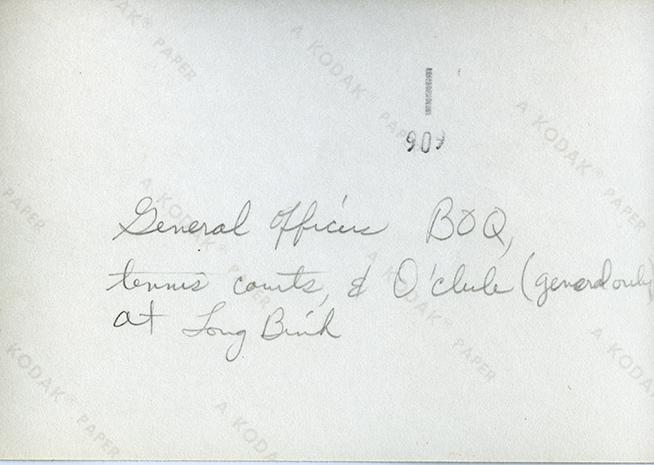 A KODAK® PAPER
A KODAK® PAPER
A KODAK® PAPER
PAPER
A KODAK® PAPER
A KODAK® PAPER
KODAK® PAPER
A KODA
A KODAK®
General Officers BOQ,
tennis courts, & O'club (general only)
at Long Binh